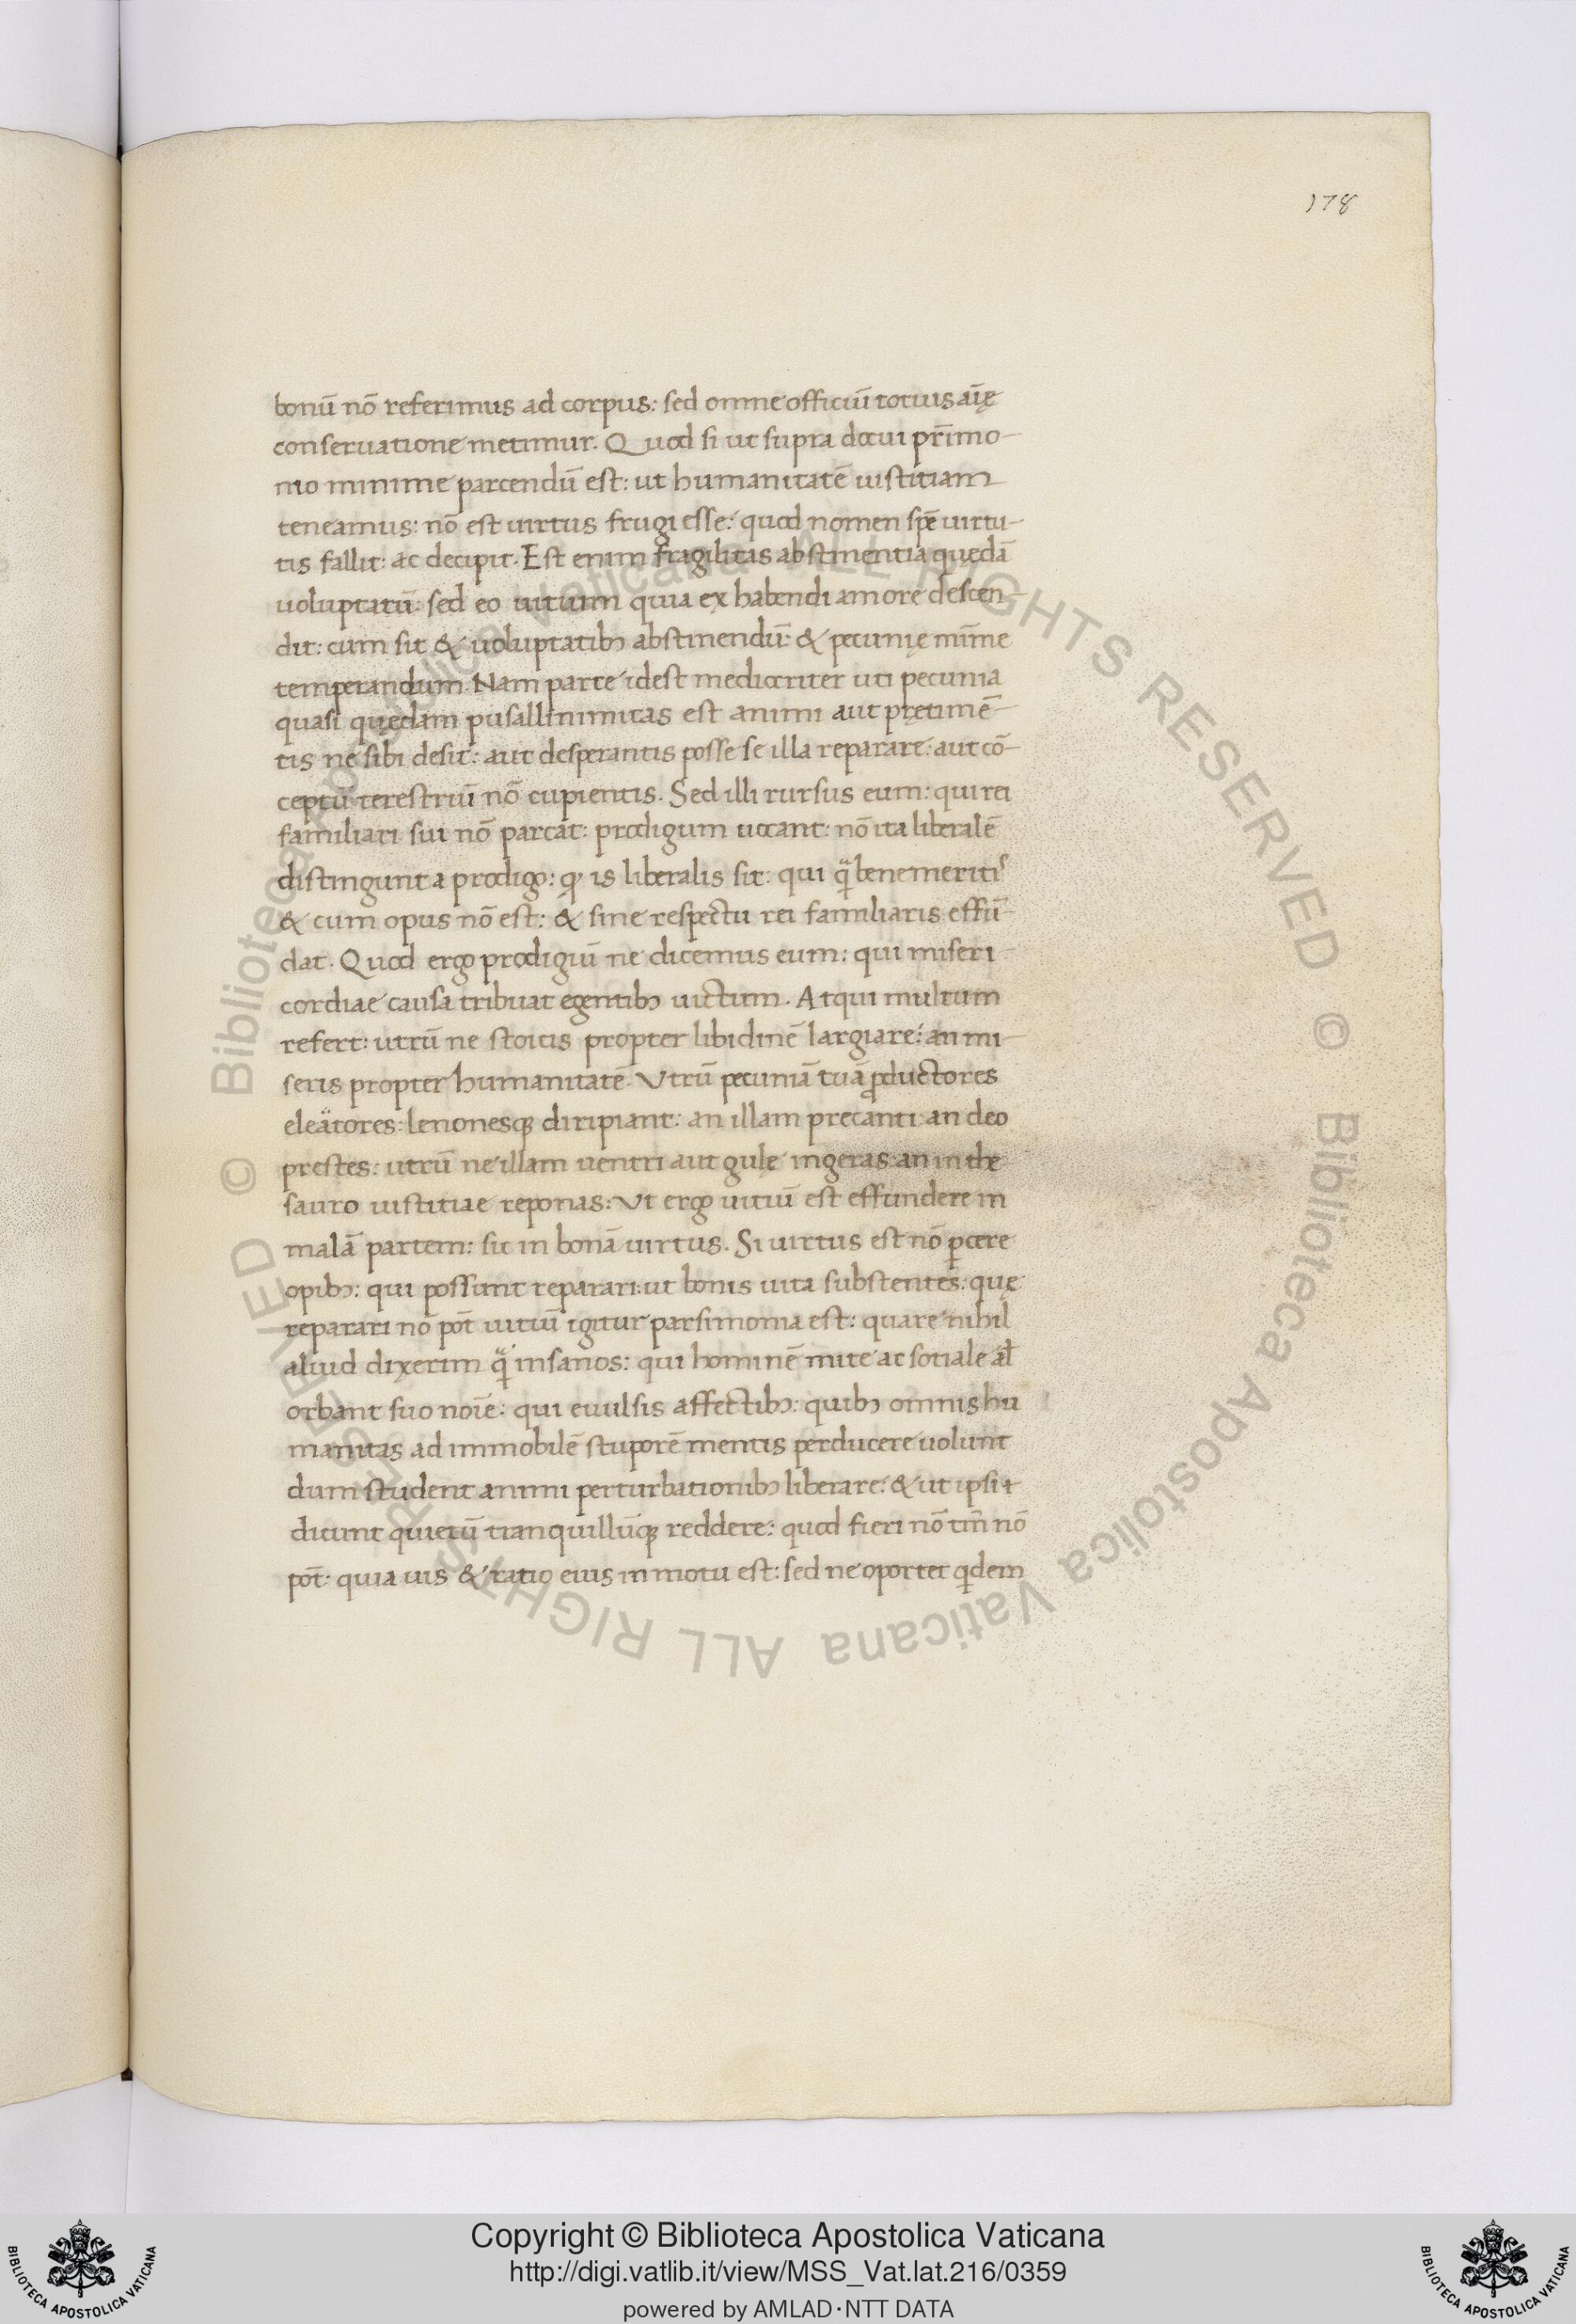 178
bonū nō referimus ad corpus: sed omne officiū totius aīę
conseruatione metimur. Quod si ut supra docui pr̄imo-
nio minime parcendū est: ut humanitatē iustitiam
teneamus: nō est uirtus frugi esse: quod nomen spē uirtu-
tis fallit: ac decipit. Est enim fragilitas abstinentia quędā
uoluptatū: sed eo uitium quia ex habendi amore descen-
dit: cum sit & uoluptatibꝫ abstinendū: & pecunię mīme
temperandum. Nam parce idest mediocriter uti pecunia
quasi quędam pusallinimitas est animi aut pretimē-
tis ne sibi desit: aut desperantis posse se illa reparare: aut cō-
ceptū terestriū nō cupientis. Sed illi rursus eum: qui rei
familiari sui nō parcat: prodigum uocant: nō ita liberalē
distingunt a prodigo: ꝙ is liberalis sit: qui q̈ benemeritis
& cum opus nō est: & sine respectu rei familiaris effū-
dat. Quod ergo prodigiū ne dicemus eum: qui miseri-
cordiae causa tribuat egentibꝫ uictum. Atqui multum
refert: utrū ne stoicis propter libidinē largiare: an mi-
seris propter humanitatē. Vtrū pecuniā tuā ꝓductores
eleätores: lenonesqꝫ diripiant: an illam precanti: an deo
prestes: utrū ne illam uentri aut gulę ingeras: an in the
sauro iustitiae reponas: Vt ergo uitiū est effundere in
malā partem: sic in bonā uirtus. Si uirtus est nō ꝑcere
opibꝫ: qui possunt reparari: ut bonis uita substentes: quę
reparari nō pōt uitiū igitur parsimonia est: quare nihil
aliud dixerim q̈ insanos: qui hominē mite ac sotiale al̄
orbant suo noīe: qui euulsis affectibꝫ: quibꝫ omnis hu
manitas ad immobilē stuporē mentis perducere uolunt
dum student animi perturbationibꝫ liberare: & ut ipsi
dicunt quietū tranquillūqꝫ reddere: quod fieri nō tm̄ nō
pōt: quia uis & ratio eius in motu est: sed ne oportet qidem
© Biblioteca Apostolica Vaticana ALL RIGHTS RESERVED © Biblioteca Apostolica Vaticana ALL RIGHTS RESERVED
Copyright © Biblioteca Apostolica Vaticana
http://digi.vatlib.it/view/MSS_Vat.lat.216/0359
powered by AMLAD·NTT DATA
BIBLIOTECA APOSTOLICA VATICANA
BIBLIOTECA APOSTOLICA VATICANA